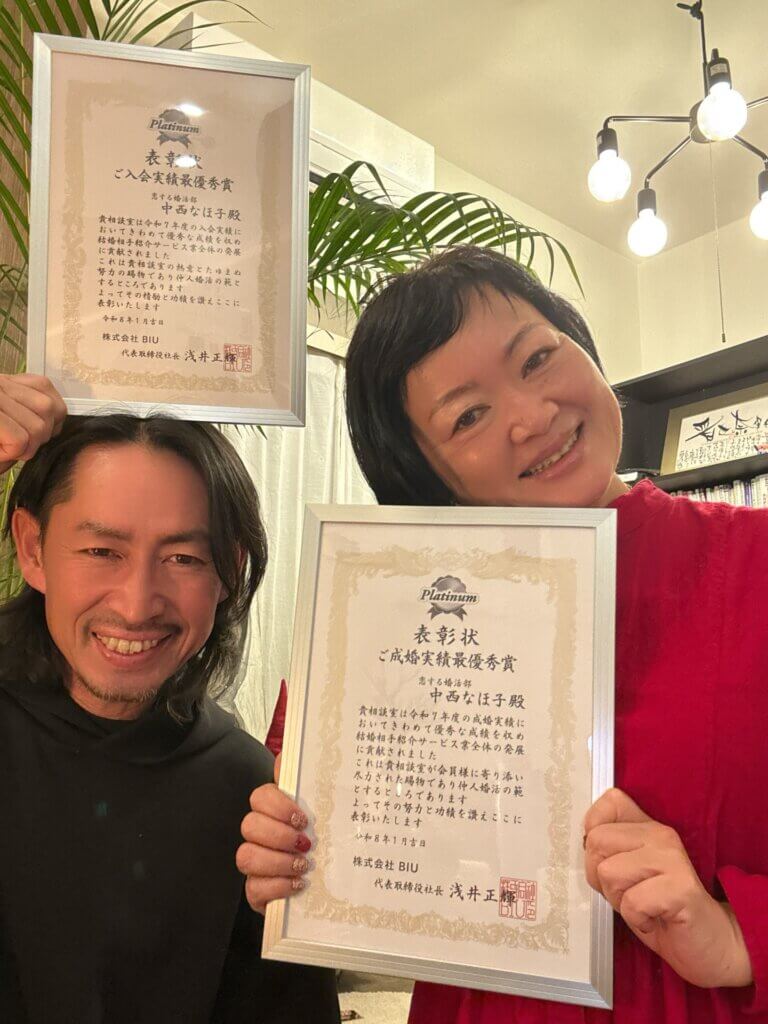 Platinum
表彰状
ご入会実績最優秀賞
恋する婚活部
中西なほ子殿
貴相談室は令和7年度の入会実績に
おいてきわめて優秀な成績を収め
結婚相手紹介サービス業全体の発展
に貢献されました
これは貴相談室の熱意とたゆまぬ
努力の賜物であり仲人婚活の範と
するところであります
よってその精励と功績を讃えここに
表彰いたします
令和8年1月吉日
株式会社 BIU
代表取締役社長 浅井正輝
Platinum
表彰状
ご成婚実績最優秀賞
恋する婚活部
中西なほ子殿
貴相談室は令和7年度の成婚実績に
おいてきわめて優秀な成績を収め
結婚相手紹介サービス業全体の発展
に貢献されました
これは貴相談室が会員様に寄り添い
尽力された賜物であり仲人婚活の範
とするところであります
よってその努力と功績を讃えここに
表彰いたします
令和8年1月吉日
株式会社 BIU
代表取締役社長 浅井正輝